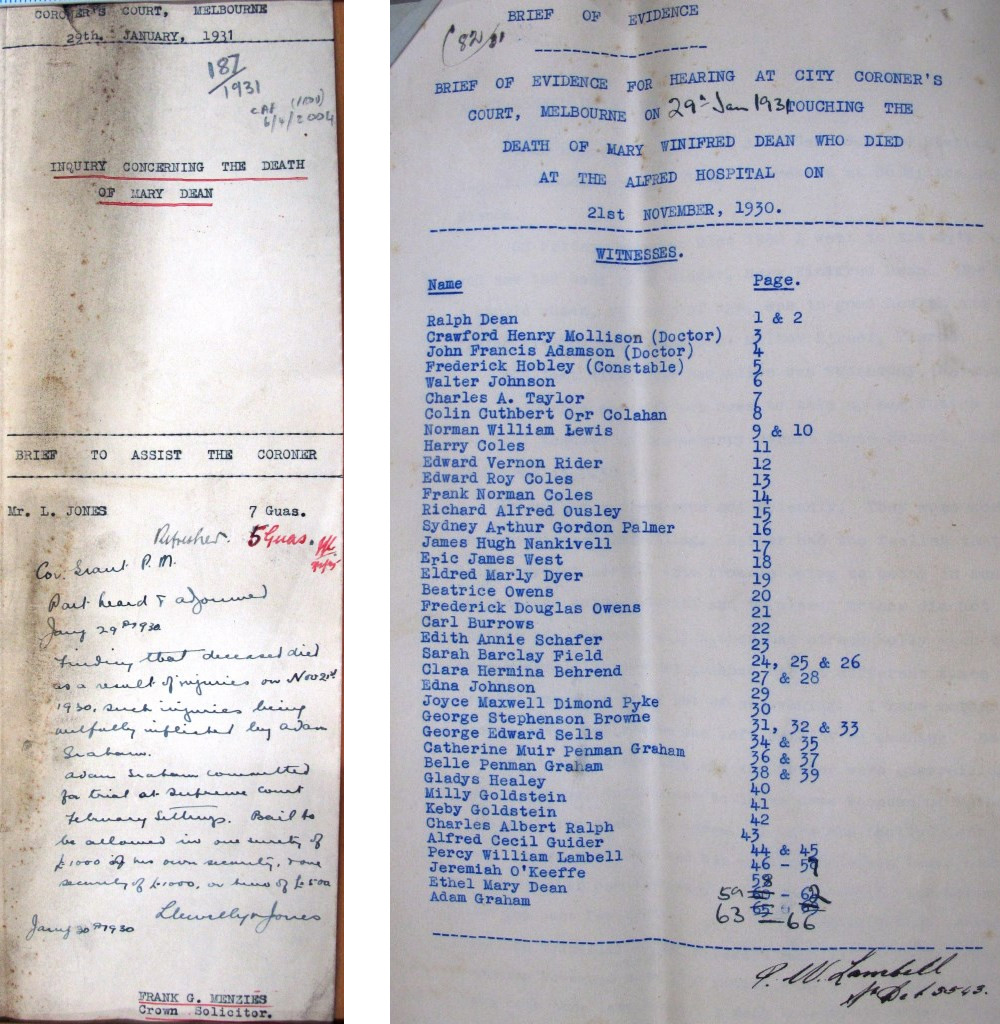 CORONER'S COURT, MELBOURNE
29th. JANUARY, 1931
187
1931
CAF (100)
6/4/2004
INQUIRY CONCERNING THE DEATH
OF MARY DEAN
BRIEF TO ASSIST THE CORONER
Mr. L. JONES 7 Guas.
Refresher. 5 Guas.
Cor. Grant P.M.
Part heard & adjourned
Jany 29th 1930
Finding that deceased died
as a result of injuries on Nov 21st
1930, such injuries being
wilfully inflicted by Adam
Graham.
Adam Graham committed
for trial at Supreme Court
February Sittings. Bail to
be allowed in one surety of
£1000 of his own security, & one
security of £1000, or two of £500
Llewellyn Jones
Jany 30th 1930
FRANK G. MENZIES
Crown Solicitor.
BRIEF OF EVIDENCE
BRIEF OF EVIDENCE FOR HEARING AT CITY CORONER'S
COURT, MELBOURNE ON 29th Jan 1931 TOUCHING THE
DEATH OF MARY WINIFRED DEAN WHO DIED
AT THE ALFRED HOSPITAL ON
21st NOVEMBER, 1930.
WITNESSES.
Name Page.
Ralph Dean 1 & 2
Crawford Henry Mollison (Doctor) 3
John Francis Adamson (Doctor) 4
Frederick Hobley (Constable) 5
Walter Johnson 6
Charles A. Taylor 7
Colin Cuthbert Orr Colahan 8
Norman William Lewis 9 & 10
Harry Coles 11
Edward Vernon Rider 12
Edward Roy Coles 13
Frank Norman Coles 14
Richard Alfred Ousley 15
Sydney Arthur Gordon Palmer 16
James Hugh Nankivell 17
Eric James West 18
Eldred Marly Dyer 19
Beatrice Owens 20
Frederick Douglas Owens 21
Carl Burrows 22
Edith Annie Schafer 23
Sarah Barclay Field 24, 25 & 26
Clara Hermina Behrend 27 & 28
Edna Johnson 29
Joyce Maxwell Dimond Pyke 30
George Stephenson Browne 31, 32 & 33
George Edward Sells 34 & 35
Catherine Muir Penman Graham 36 & 37
Belle Penman Graham 38 & 39
Gladys Healey 40
Milly Goldstein 41
Keby Goldstein 42
Charles Albert Ralph 43
Alfred Cecil Guider 44 & 45
Percy William Lambell 46 -
Jeremiah O'Keeffe 58
Ethel Mary Dean 59 - 62
Adam Graham 63 - 66
P. W. Lambell